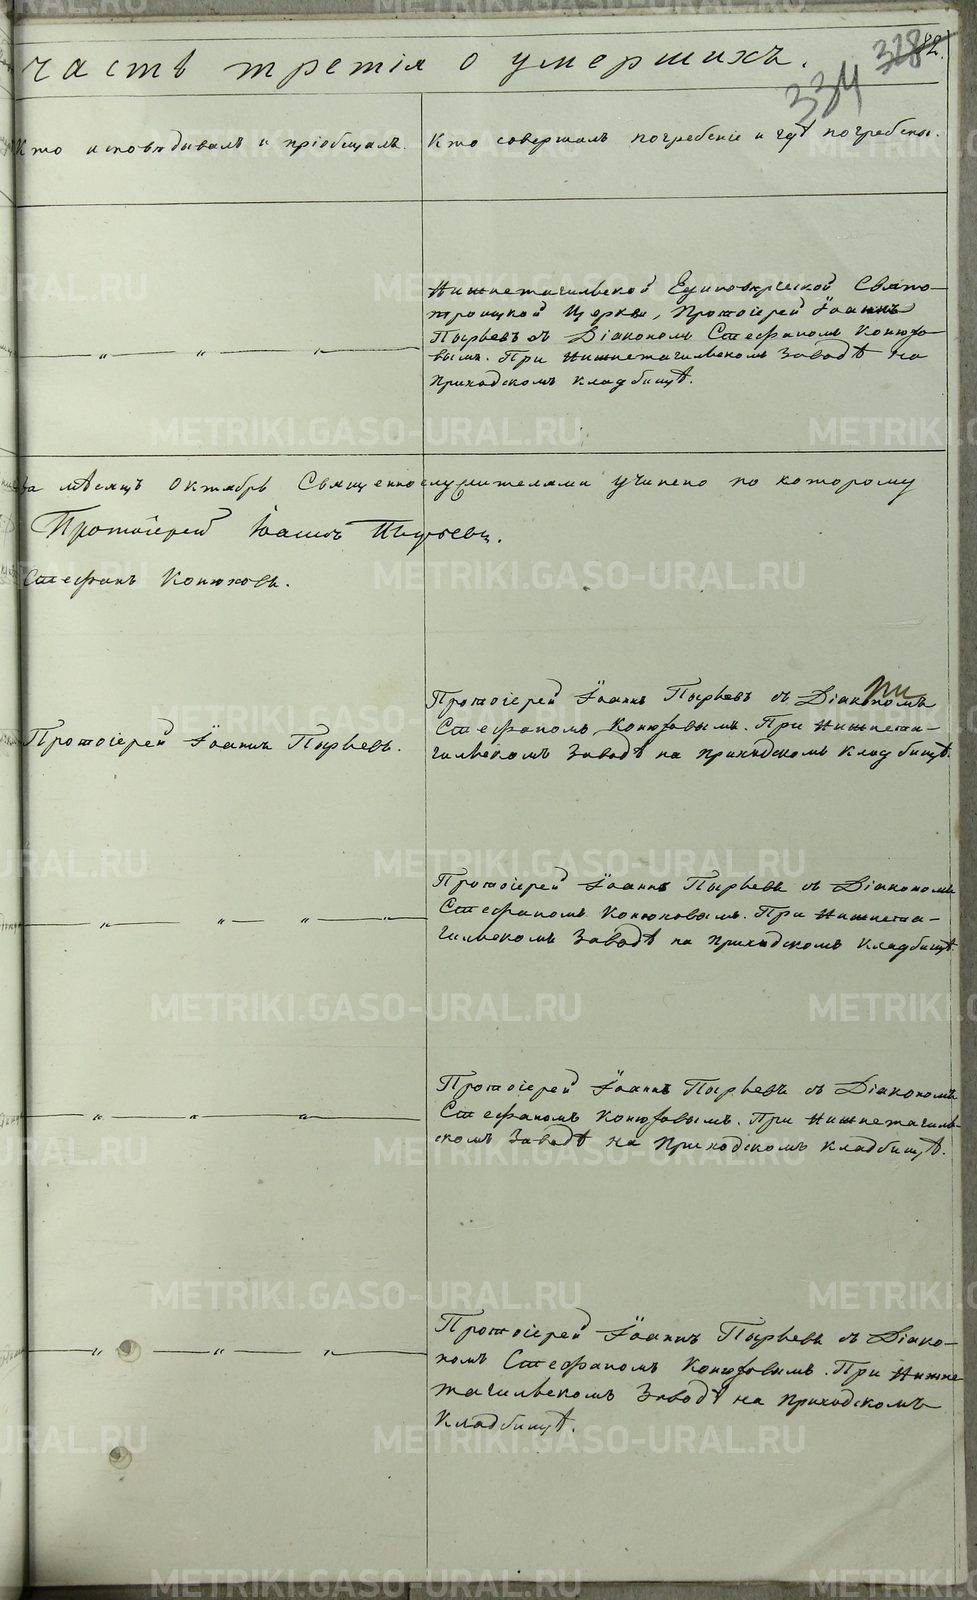 часть третія о умершихъ.
328
82.
334
Кто исповѣдывалъ и пріобщалъ.
Кто совершалъ погребеніе и гдѣ погребены.
Нижнетагильской Единовѣрческой Свято-
троицкой Церкви, Протоіерей Іоаннъ
Пырьевъ съ Діакономъ Стефаномъ Конюхо-
вымъ. При Нижнетагильскомъ Заводѣ на
приходскомъ кладбищѣ.
— „ — „ — „ —
за мѣсяцъ Октябрь Священнослужителями учинено по которому
Протоіерей Іоаннъ Пырьевъ.
Стефанъ Конюховъ.
Протоіерей Іоаннъ Пырьевъ.
Протоіерей Іоаннъ Пырьевъ съ Діакономъ
Стефаномъ Конюховымъ. При Нижнета-
гильскомъ Заводѣ на приходскомъ кладбищѣ.
— „ — „ — „ — „ —
Протоіерей Іоаннъ Пырьевъ съ Діакономъ
Стефаномъ Конюховымъ. При Нижнета-
гильскомъ Заводѣ на приходскомъ кладбищѣ.
— „ — „ — „ —
Протоіерей Іоаннъ Пырьевъ съ Діакономъ
Стефаномъ Конюховымъ. При Нижнетагиль-
скомъ Заводѣ на приходскомъ кладбищѣ.
— „ — „ — „ —
Протоіерей Іоаннъ Пырьевъ съ Діако-
номъ Стефаномъ Конюховымъ. При Нижне
тагильскомъ Заводѣ на приходскомъ
кладбищѣ.
METRIKI.GASO-URAL.RU